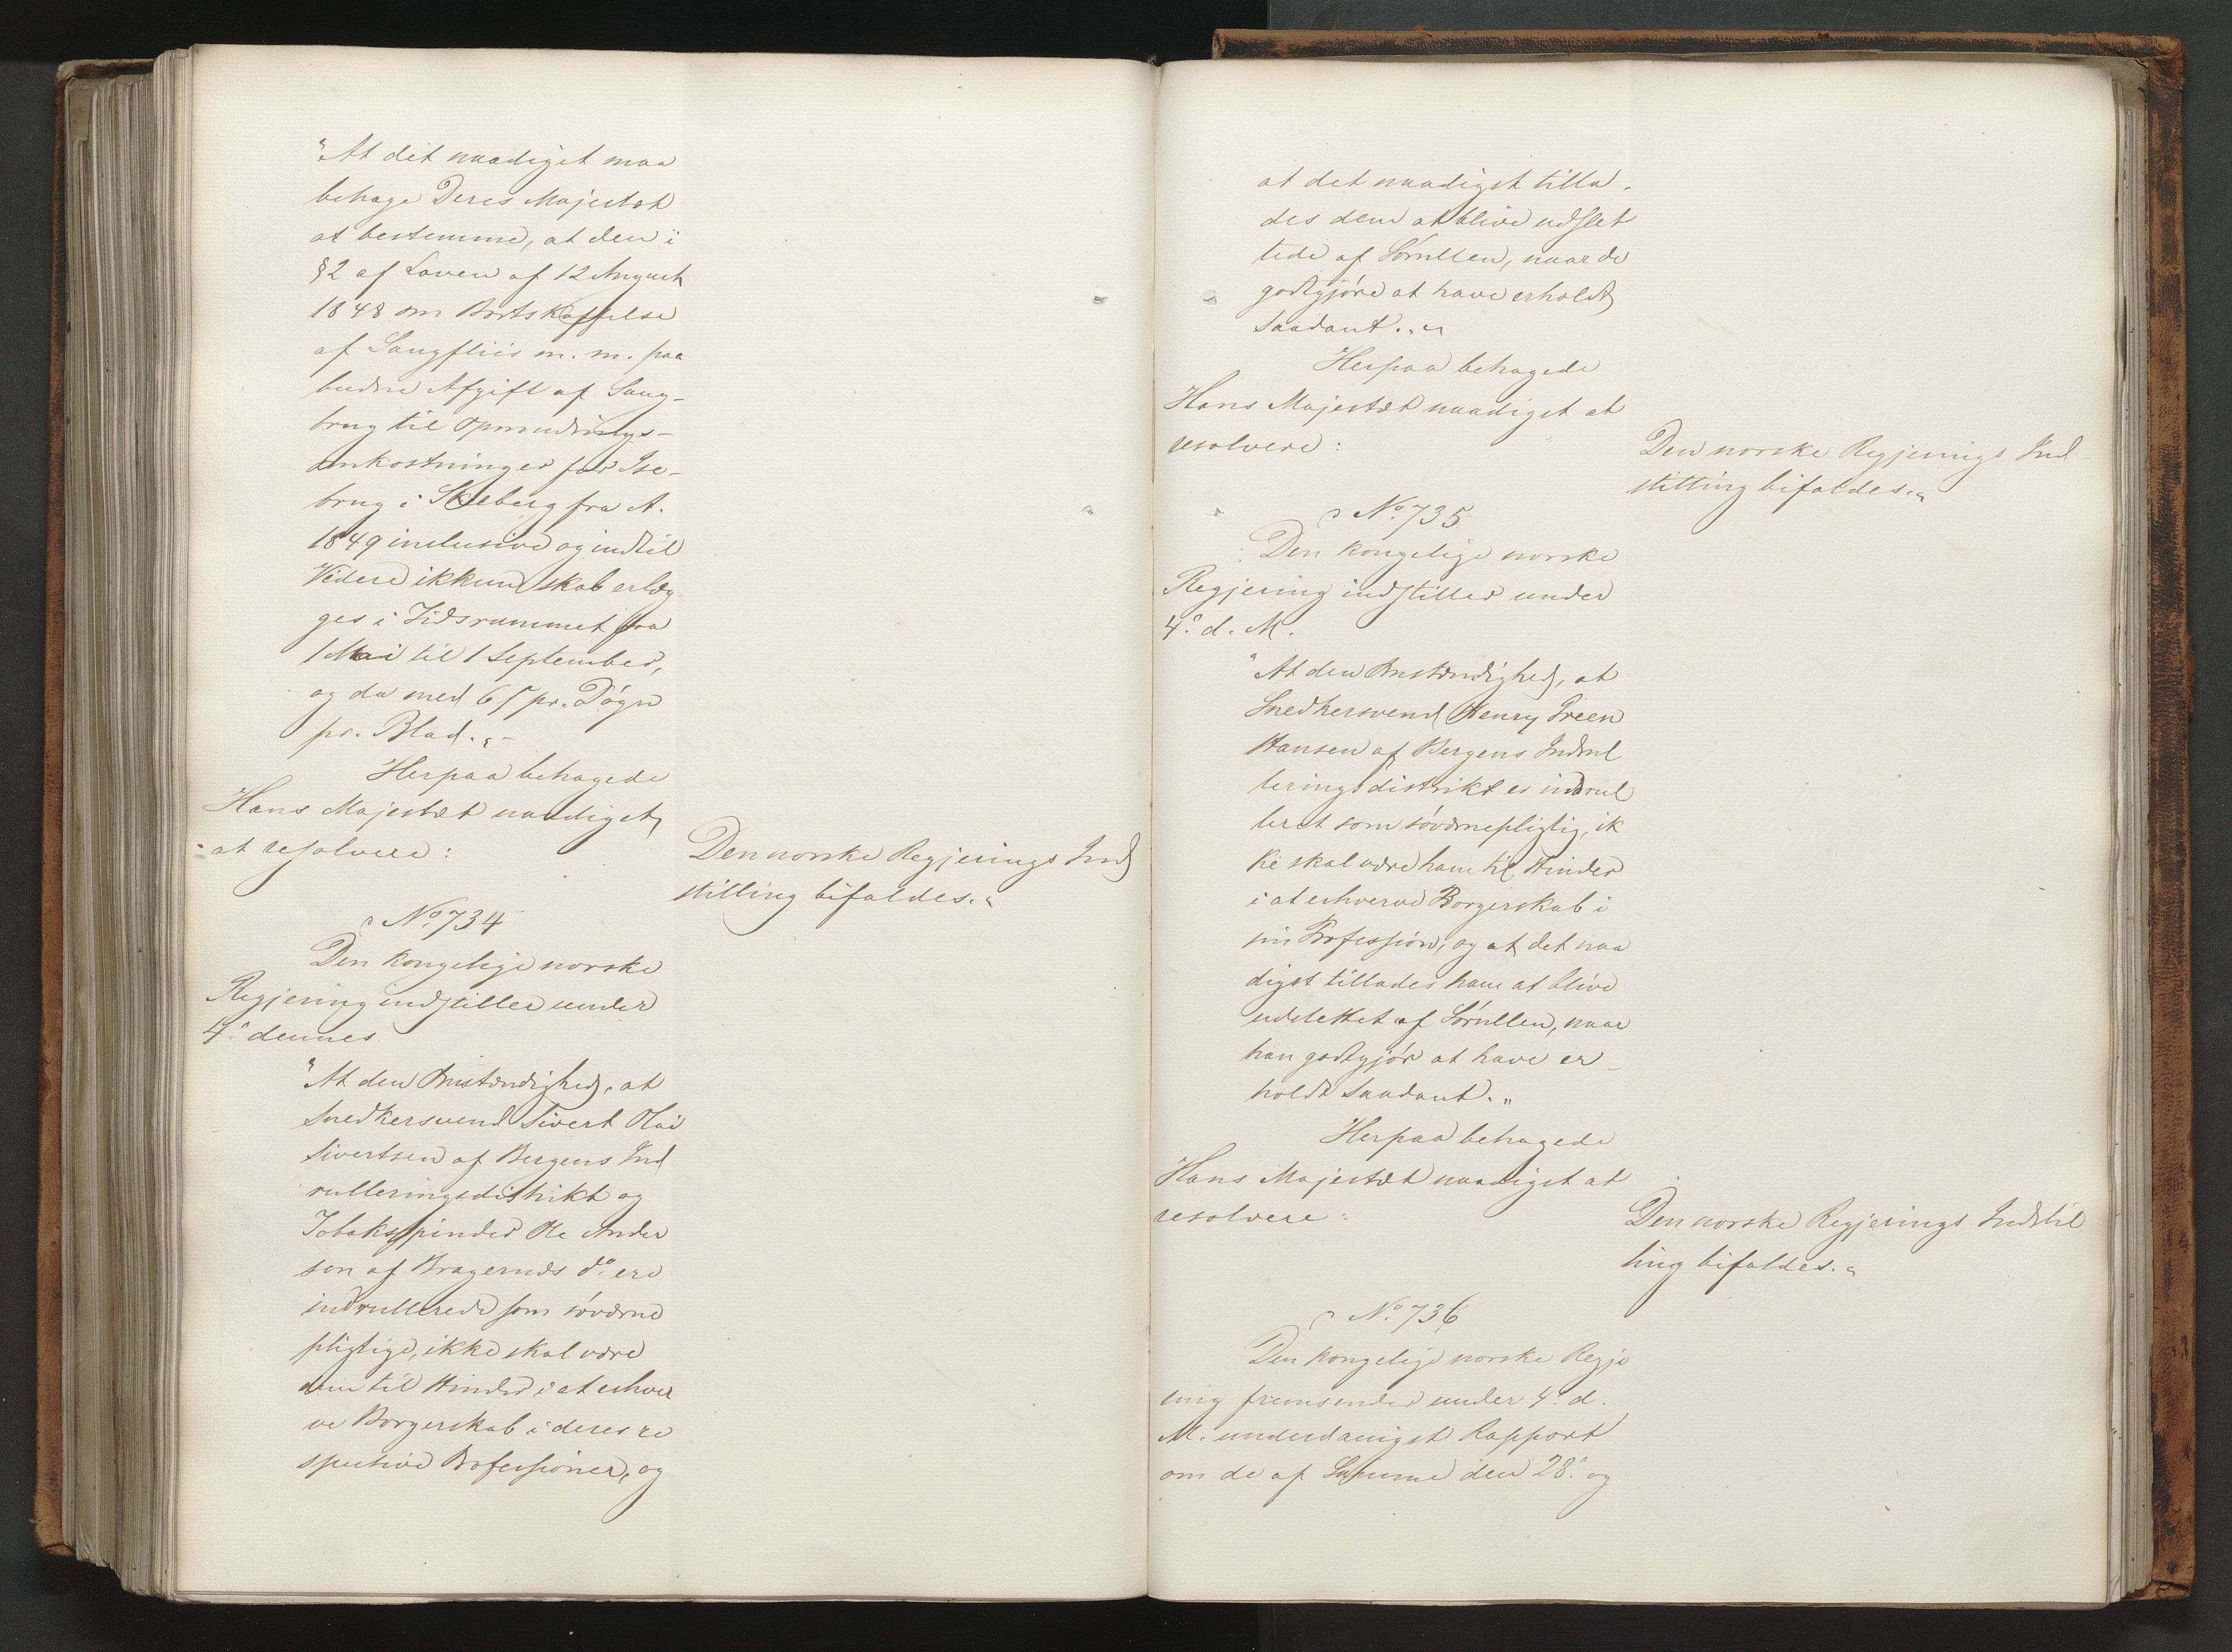 "At det naadigst maa
behage Deres Majestæt
at bestemme, at den i
§2 af Loven af 12 August
1848 om Bortskaffelse
af Saugfliis m. m. paa
budne Afgift af Saug-
brug til Opmudrings-
omkostninger for Ise-
brug i Skeberg fra A.
1849 inclusive og indtil
Videre ikkun skal erlæg
ges i Tidsrummet fra
1 Mai til 1 September,
og da med 6 ß pr. Døgn
pr. Blad."-
Herpaa behagede
Hans Majestæt naadigst
at resolvere:
Den norske Regjerings Ind
stilling bifaldes."
No. 734
Den kongelige norske
Regjering indstiller under
4de dennes
"At den Omstændighed, at
Snedkersvend Sivert Olai
Sivertsen af Bergens Ind
rulleringsdistrikt og
Tobaksspinder Ole Ander
sen af Bragernæs do. ere
indrullerede som søværne
pligtige, ikke skal være
dem til Hinder i at erhver
ve Borgerskab i deres re
spective Professioner, og
at det naadigst tilla-
des dem at blive udslet
tede af Sørullen, naar de
godtgjøre at have erholdt
saadant."
Herpaa behagede
Hans Majestæt naadigst at
resolvere:
Den norske Regjerings Ind
stilling bifaldes."
No. 735
Den kongelige norske
Regjering indstiller under
4de d. M.
"At den Omstændighed, at
Snedkersvend Henry Green
Hansen af Bergens Indrul
leringsdistrikt er indrul
leret som søværnepligtig, ik
ke skal være ham til Hinder
i at erhverve Borgerskab i
sin Profession, og at det naa
digst tillades ham at blive
udslettet af Sørullen, naar
han godtgjør at have er-
holdt saadant."
Herpaa behagede
Hans Majestæt naadigst at
resolvere:
Den norske Regjerings Indstil
ling bifaldes."
No. 736
Den kongelige norske Regje
ring fremsender under 4de d.
M. underdanigst Rapport
om de af Samme den 28de og